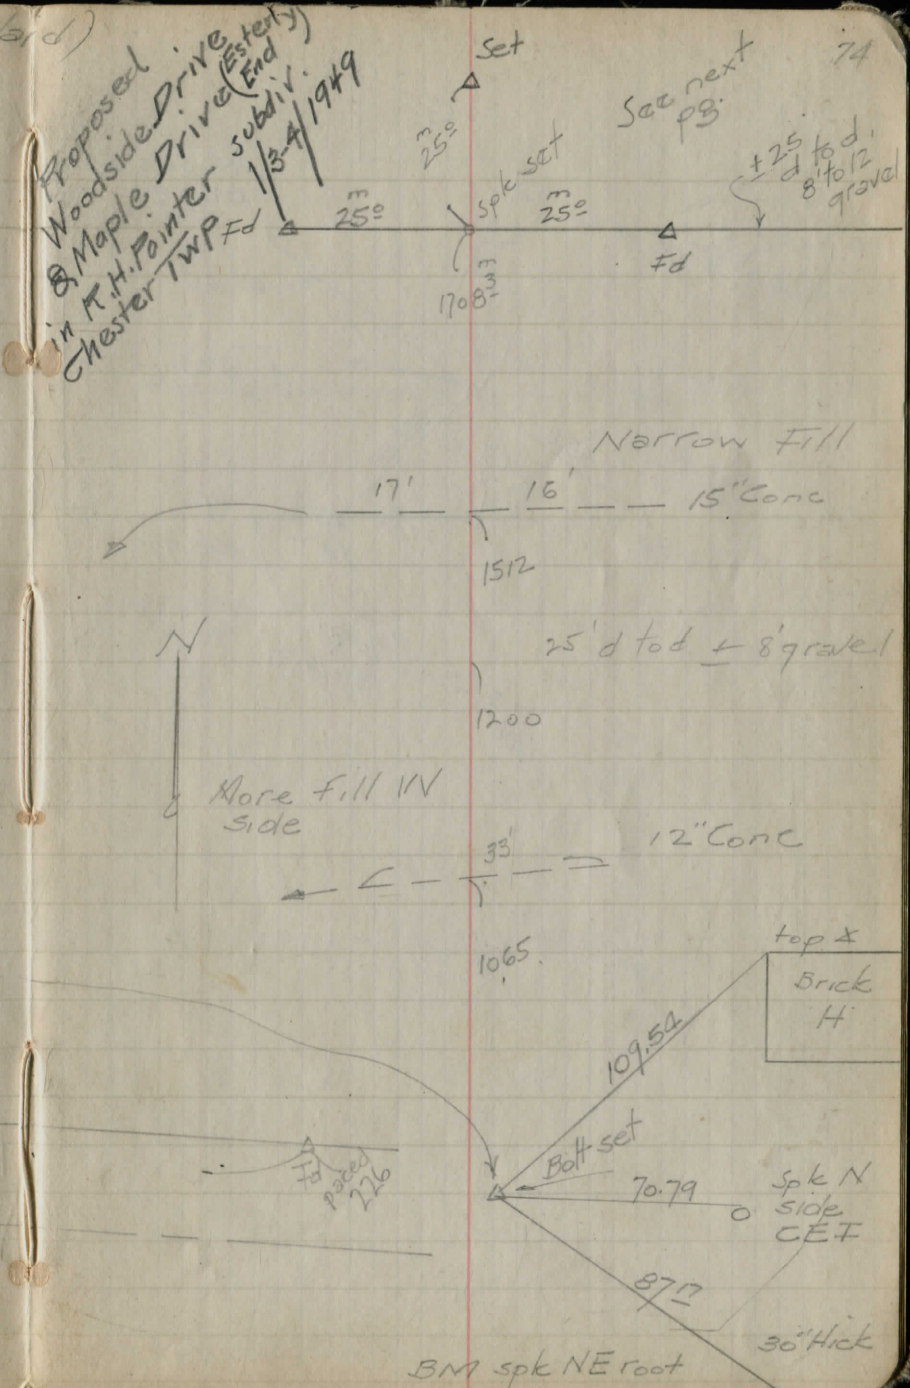 74
Proposed
Woodside Drive
& Maple Drive (Easterly End)
in R.H. Pointer subdiv.
Chester Twp
1/3-4/1949
Set
25º
m
See next
pg.
spk set
± 25
d to d
8' to 12'
gravel
Fd
m
25º
m
25º
Fd
m
1708
Narrow Fill
17'
16'
15" Conc
1512
N
25' d to d ± 8' gravel
1200
More Fill W
side
33'
12" Conc
1065
top
Brick
H
109.54
Bolt set
70.79
spk N
side
CEI
Fd
paced
226
87
30" Hick
BM spk NE root